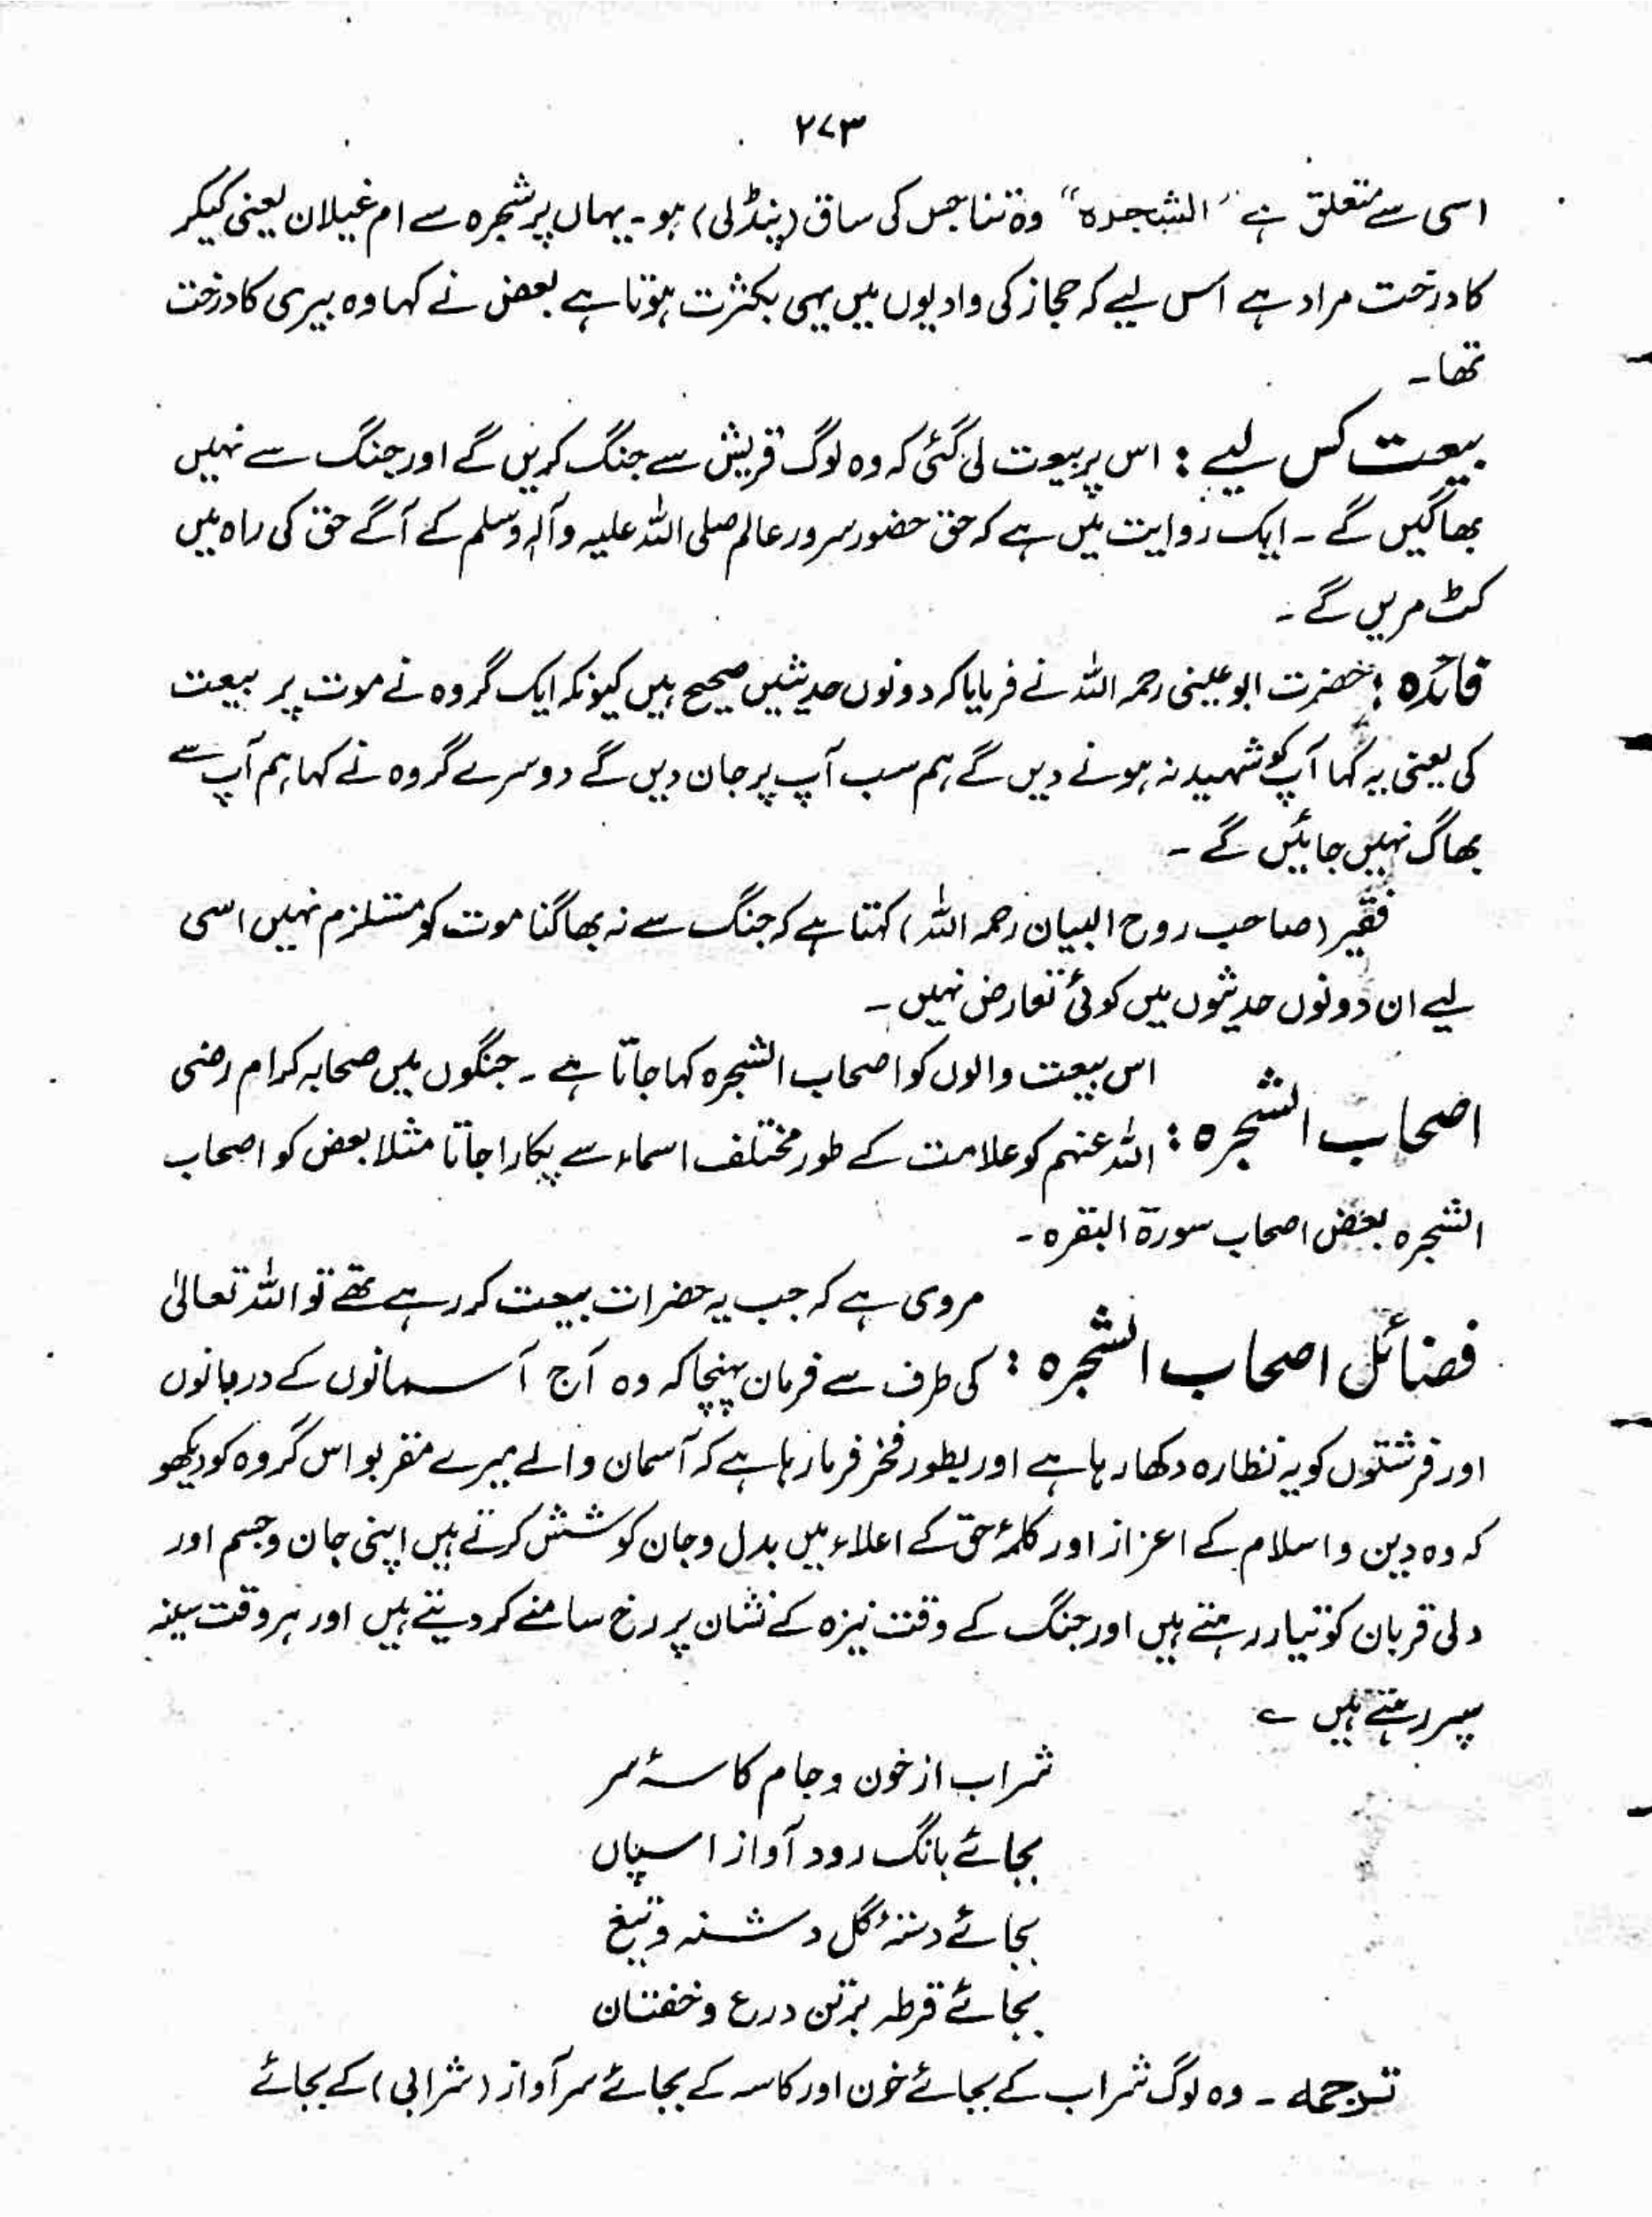 ۲۷۳
اسی سے متعلق ہے "الشجرہ" وہ تنا جس کی ساق (پنڈلی) ہو۔ یہاں پر شجرہ سے ام غیلان یعنی کیکر
کا درخت مراد ہے اس لیے کہ حجاز کی وادیوں میں یہی بکثرت ہوتا ہے بعض نے کہا وہ بیری کا درخت
تھا۔
بیعت کس لیے : اس پر بیعت لی گئی کہ وہ لوگ قریش سے جنگ کریں گے اور جنگ سے نہیں
بھاگیں گے ۔ ایک روایت میں ہے کہ حق حضور سرور عالم صلی اللہ علیہ وآلہ وسلم کے آگے حق کی راہ میں
کٹ مریں گے ۔
فائدہ : حضرت ابو عیسٰی رحمہ اللہ نے فرمایا کہ دونوں حدیثیں صحیح ہیں کیونکہ ایک گروہ نے موت پر بیعت
کی یعنی یہ کہا آپ کو شہید نہ ہونے دیں گے ہم سب آپ پر جان دیں گے دوسرے گروہ نے کہا ہم آپ سے
بھاگ نہیں جائیں گے ۔
فقیر (صاحب روح البیان رحمہ اللہ) کہتا ہے کہ جنگ سے نہ بھاگنا موت کو مستلزم نہیں اسی
لیے ان دونوں حدیثوں میں کوئی تعارض نہیں ۔
اصحاب الشجرہ : اس بیعت والوں کو اصحاب الشجرہ کہا جاتا ہے ۔ جنگوں میں صحابہ کرام رضی
اللہ عنہم کو علامت کے طور مختلف اسماء سے پکارا جاتا مثلا بعض کو اصحاب
الشجرہ بعض اصحاب سورۃ البقرہ ۔
فضائل اصحاب الشجرہ : مروی ہے کہ جب یہ حضرات بیعت کر رہے تھے تو اللہ تعالیٰ
کی طرف سے فرمان پہنچا کہ وہ آج آسمانوں کے دربانوں
اور فرشتوں کو یہ نظارہ دکھا رہا ہے اور بطور فخر فرما رہا ہے کہ آسمان والے میرے مقربو اس گروہ کو دیکھو
کہ وہ دین و اسلام کے اعزاز اور کلمۂ حق کے اعلاء میں بدل و جان کوشش کرتے ہیں اپنی جان و جسم اور
دلی قربان کو تیار رہتے ہیں اور جنگ کے وقت نیزہ کے نشان پر رخ سامنے کر دیتے ہیں اور ہر وقت سینہ
سپر رہتے ہیں ے
شراب از خون و جام کاسۂ سر
بجائے بانگ رود آواز اسپاں
بجائے دستۂ گل دشنہ و تیغ
بجائے قرطہ برتن درع و خفتان
ترجمہ ۔ وہ لوگ شراب کے بجائے خون اور کاسہ کے بجائے سر آواز (شرابی) کے بجائے